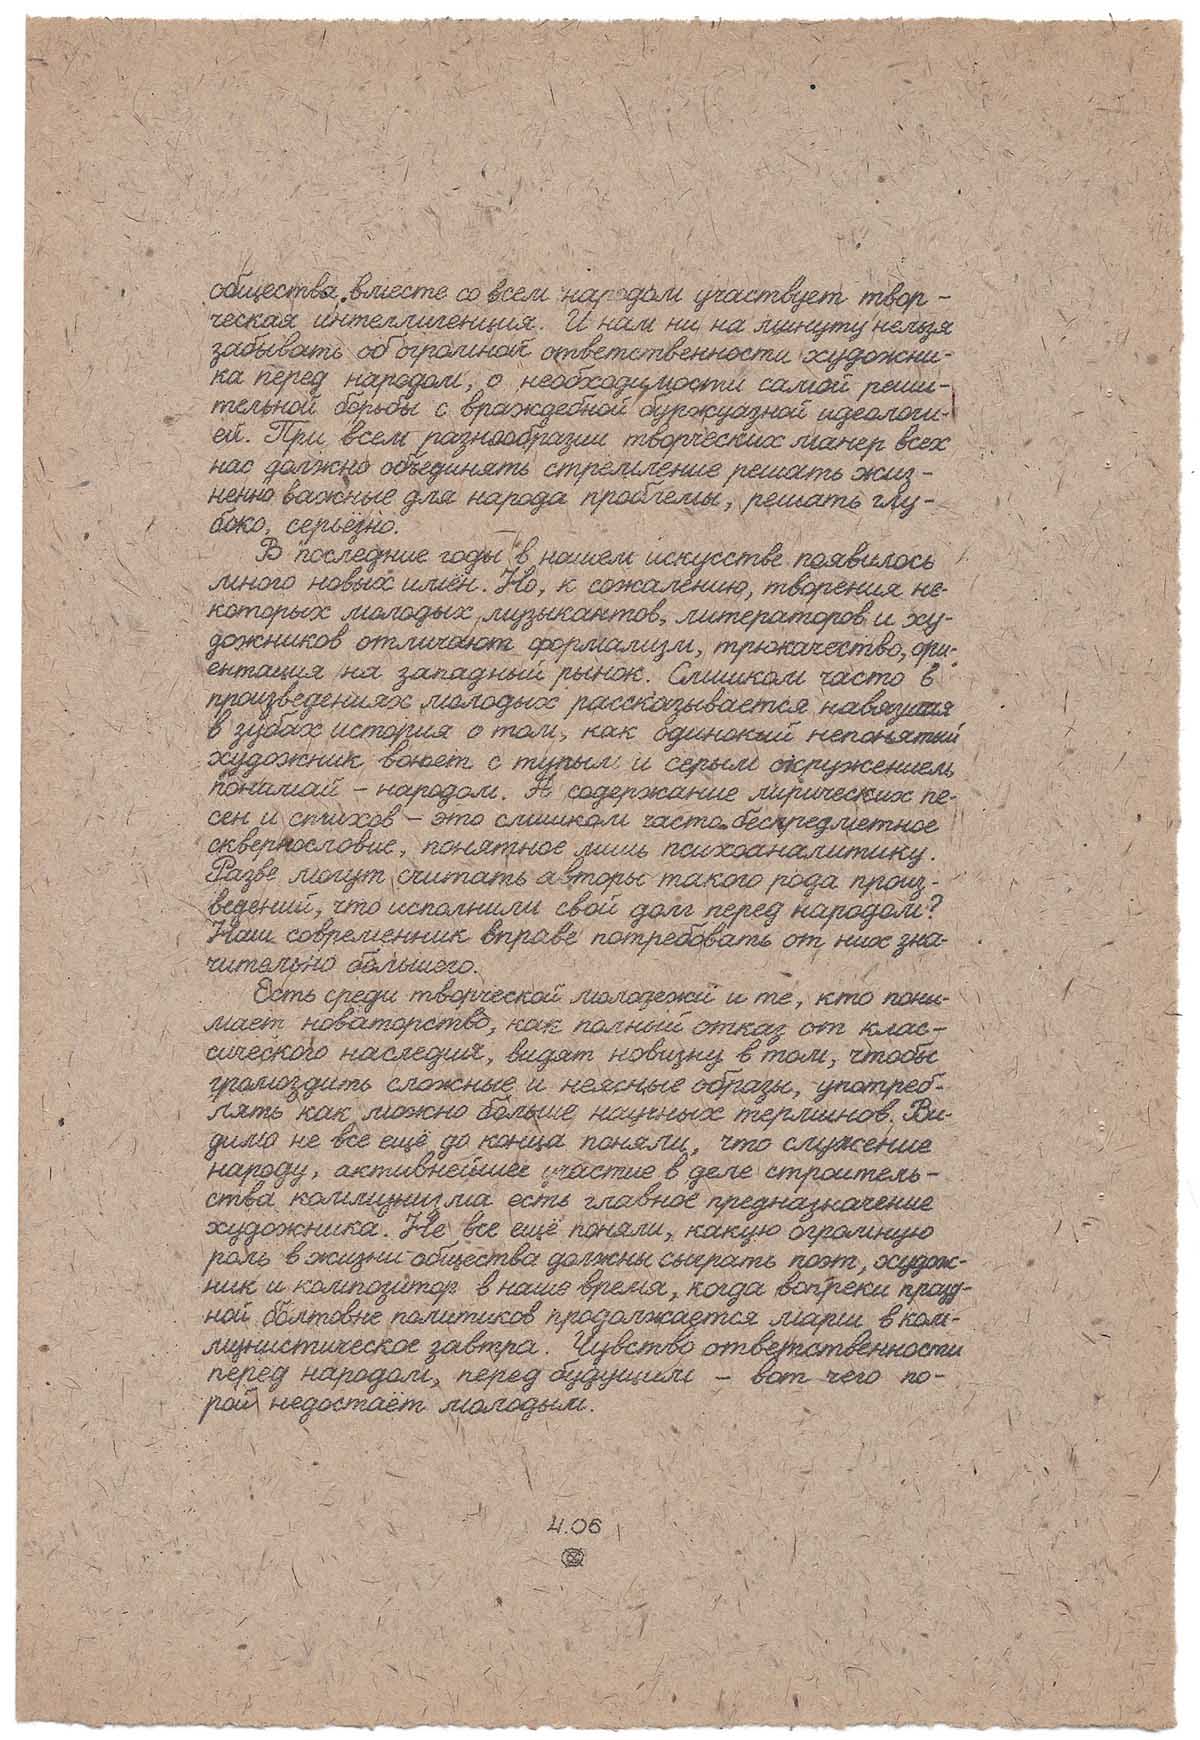 общества, вместе со всем народом участвует твор-
ческая интеллигенция. И нам ни на минуту нельзя
забывать об огромной ответственности художни-
ка перед народом, о необходимости самой реши-
тельной борьбы с враждебной буржуазной идеологи-
ей. При всем разнообразии творческих манер всех
нас должно объединять стремление решать жиз-
ненно важные для народа проблемы, решать глу-
боко, серьёзно.
В последние годы в нашем искусстве появилось
много новых имён. Но, к сожалению, творения не-
которых молодых музыкантов, литераторов и ху-
дожников отличают формализм, трюкачество, ори-
ентация на западный рынок. Слишком часто в
произведениях молодых рассказывается навязшая
в зубах история о том, как одинокий непонятый
художник воюет с тупым и серым окружением,
понимай – народом. А содержание лирических пе-
сен и стихов – это слишком часто беспредметное
сквернословие, понятное лишь психоаналитику.
Разве могут считать авторы такого рода произ-
ведений, что исполнили свой долг перед народом?
Наш современник вправе потребовать от них зна-
чительно большего.
Есть среди творческой молодежи и те, кто пони-
мает новаторство, как полный отказ от клас-
сического наследия, видят новизну в том, чтобы
громоздить сложные и неясные образы, употреб-
лять как можно больше научных терминов. Ви-
димо не все ещё до конца поняли, что служение
народу, активнейшее участие в деле строитель-
ства коммунизма есть главное предназначение
художника. Не все ещё поняли, какую огромную
роль в жизни общества должны сыграть поэт, худож-
ник и композитор в наше время, когда вопреки празд-
ной болтовне политиков продолжается марш в ком-
мунистическое завтра. Чувство ответственности
перед народом, перед будущим – вот чего по-
рой недостаёт молодым.
4.06